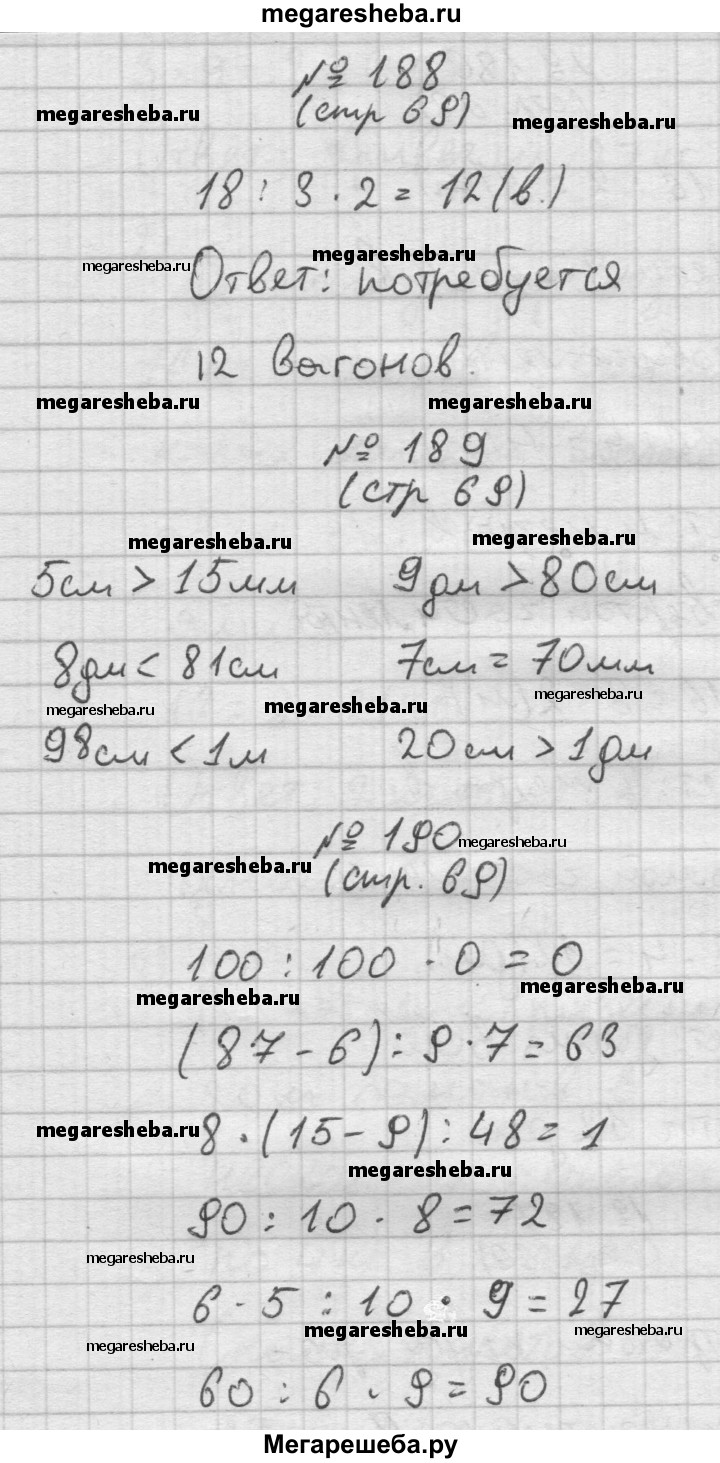 megaresheba.ru
№ 188
megaresheba.ru (стр 69) megaresheba.ru
18 : 3 · 2 = 12 (в.)
megaresheba.ru megaresheba.ru
Ответ: потребуется
12 вагонов.
megaresheba.ru megaresheba.ru
№ 189
(стр 69)
megaresheba.ru megaresheba.ru
5см > 15мм 9дм > 80см
8дм < 81см 7см = 70мм
megaresheba.ru megaresheba.ru megaresheba.ru
98см < 1м 20см > 1дм
№ 190 megaresheba.ru
megaresheba.ru (стр. 69)
100 : 100 · 0 = 0
megaresheba.ru megaresheba.ru
(87 - 6) : 9 · 7 = 63
megaresheba.ru 8 · (15 - 9) : 48 = 1
megaresheba.ru
90 : 10 · 8 = 72
megaresheba.ru
6 · 5 : 10 · 9 = 27
megaresheba.ru megaresheba.ru megaresheba.ru
60 : 6 · 9 = 90
Мегарешеба.ру